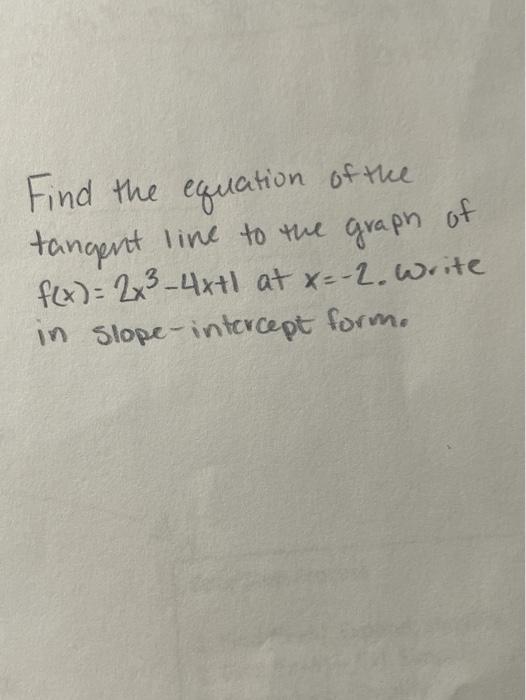 Find the equation of the
tangent line to the graph of
f(x)= 2x³-4x+1 at x=-2. Write
in slope-intercept form.